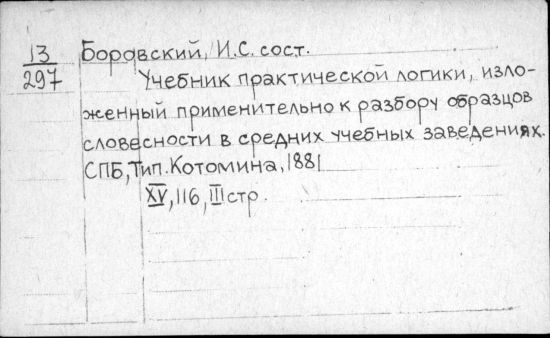 13
297
Боровский, И.С. сост.
Учебник практической логики, изло-
женный применительно к разбору образцов
словесности в средних учебных заведениях.
СПБ, Тип. Котомина, 1881
XV, 116, III стр.